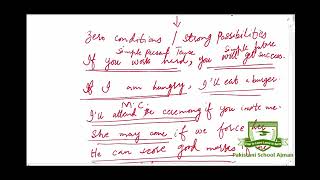 Zero conditions / Strong Possibilities
Simple Present Tense Simple future
If you work hard, you will get success.
If I am hungry, I'll eat a burger.
M.C.
I'll attend the ceremony if you invite me.
She may come if we force her
He can score good marks if
Pakistani School Ajman